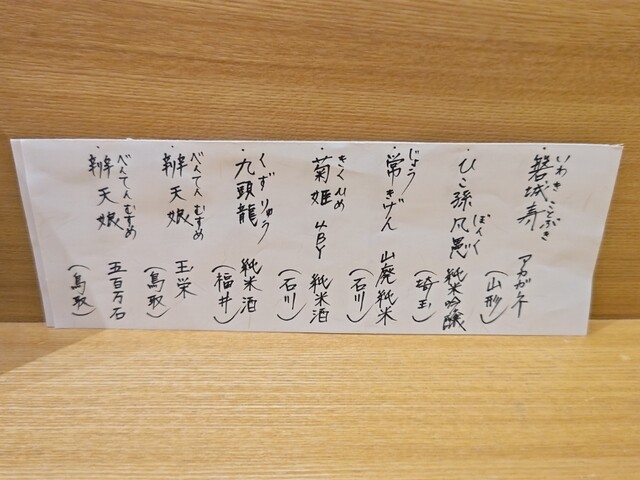 ・磐城壽 アカガネ
いわき ことぶき
(山形)
・ひこ孫凡愚 純米吟醸
ぼんぐ
(埼玉)
・常きげん 山廃純米
じょう
(石川)
・菊姫 4BY 純米酒
きくひめ
(石川)
・九頭龍 純米酒
くずりゅう
(福井)
・辨天娘 玉栄
べんてんむすめ
(鳥取)
・辨天娘 五百万石
べんてんむすめ
(鳥取)